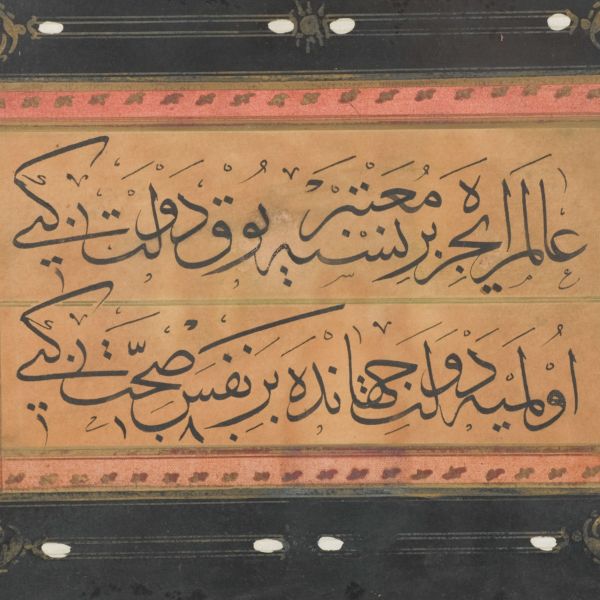 عالم ایجره معتبر بر نسنه یوق دولت کبی
اولمیه دولت جهانده بر نفس صحت کبی